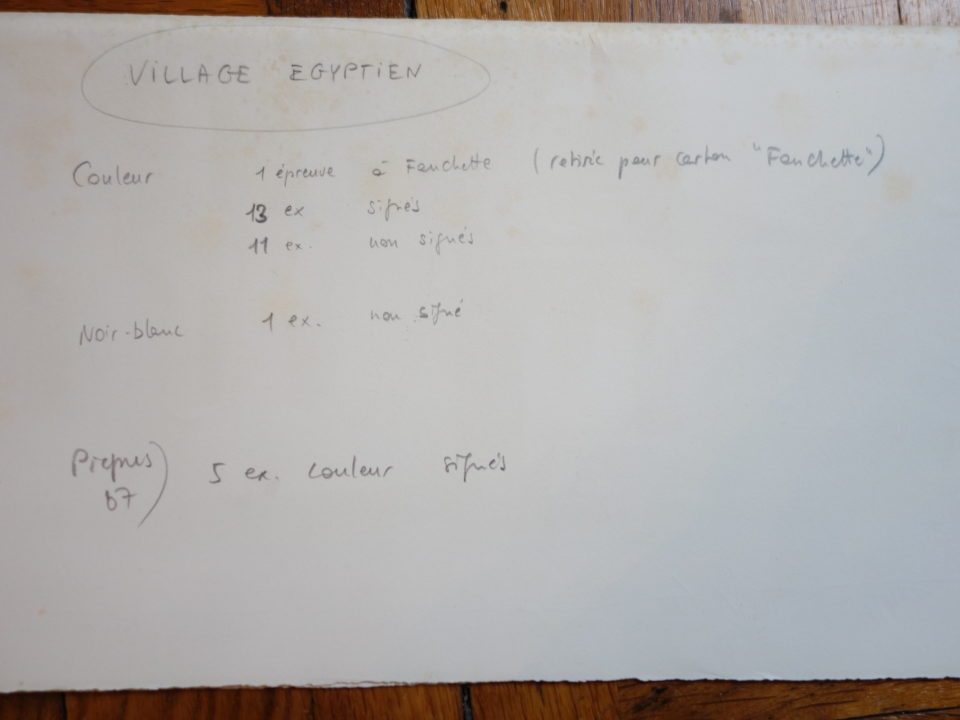 VILLAGE EGYPTIEN
Couleur 1 épreuve à Fanchette (retirée pour carton "Fanchette")
13 ex signés
11 ex. non signés
Noir-blanc 1 ex. non signé
5 ex. couleur signés